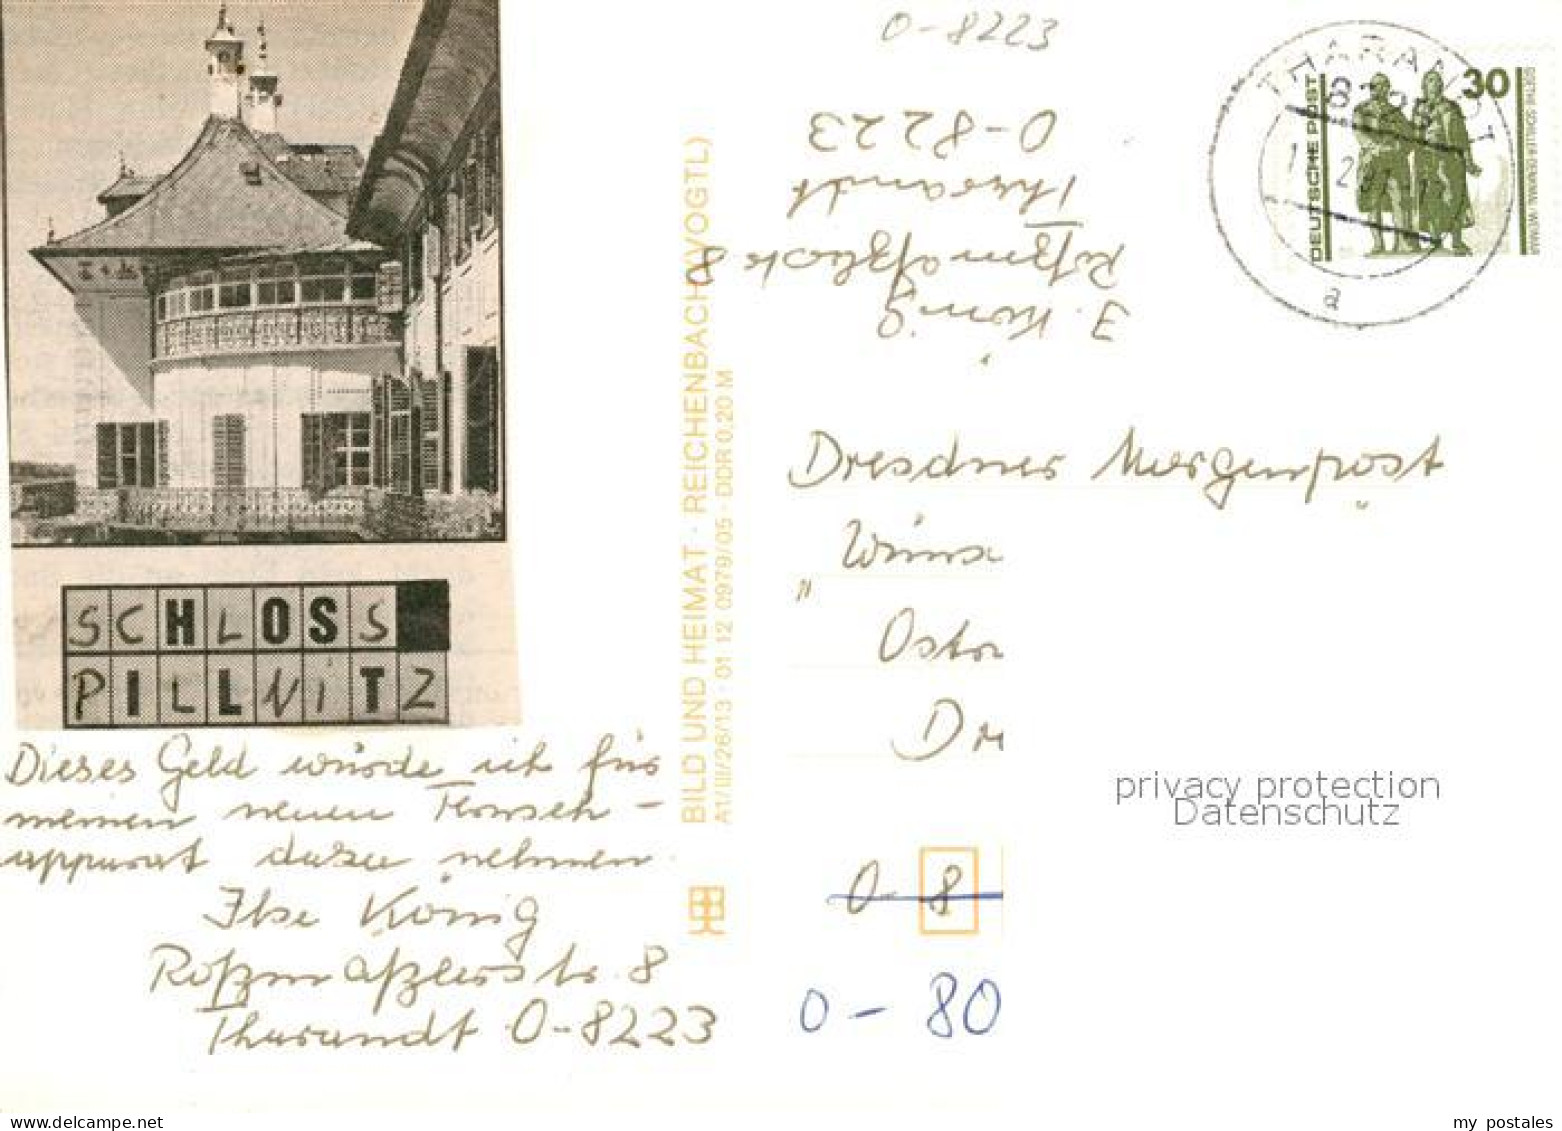 SCHLOSS
PILLNITZ
Dieses Geld würde ich für
meinen neuen Fernseh-
apparat dazu nehmen
Ilse König
Roßmäßlerstr. 8
Tharandt O-8223
BILD UND HEIMAT · REICHENBACH (VOGTL)
A1/III/26/13 · 01 12 0979/05 · DDR 0,20 M
O-8223
O-8223
Tharandt
Roßmäßlerstr 8
I. König
THARANDT
a
DEUTSCHE POST
30
GOETHE-SCHILLER-DENKMAL WEIMAR
Dresdner Morgenpost
"
Ostr
Dr
privacy protection
Datenschutz
O-8
O-80
my postales